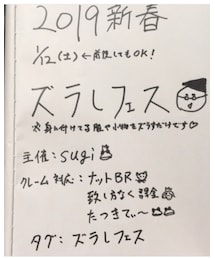 2019新春
1/12(土)←前後してもOK!
ズラしフェス
※身に付けてる服や小物をズラすだけです
主催:sugi
クレーム対応:ナットBR
致し方なく課金
たつきてぃ〜
タグ:ズラしフェス